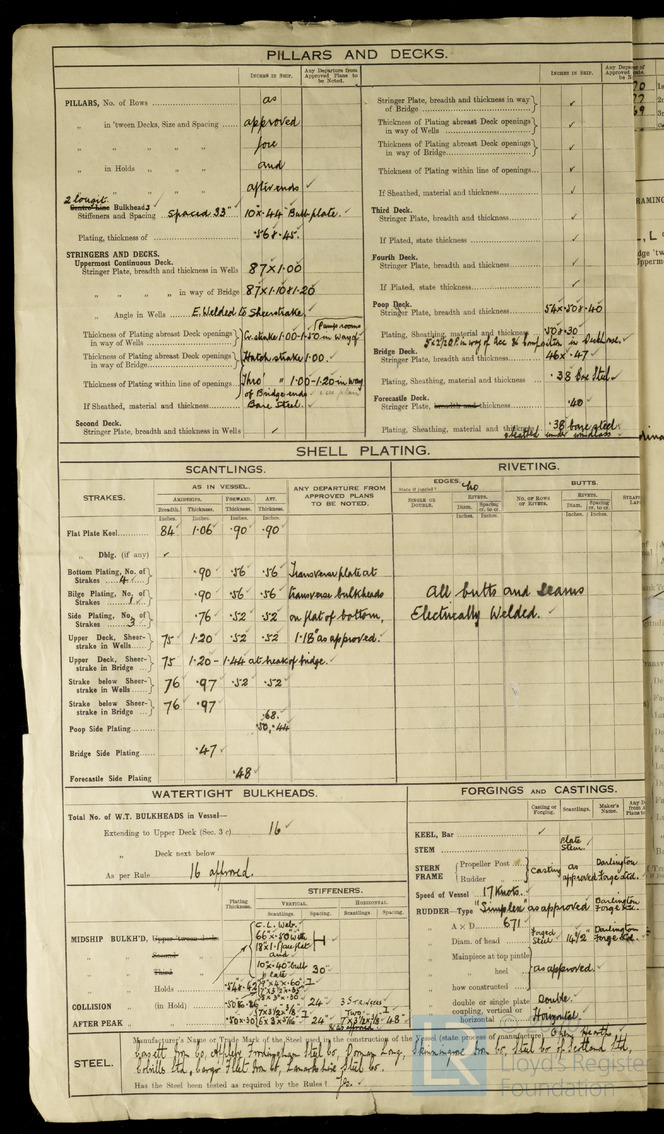 PILLARS AND DECKS.
INCHES IN SHIP.
Any Departure from Approved Plans to be Noted.
PILLARS, No. of Rows as
„ in 'tween Decks, Size and Spacing approved
„ „ „ „ fore
„ in Holds „ „ and
„ „ „ „ after ends ✓
2 longit. Centre Line Bulkheads
Stiffeners and Spacing spaced 33" 10 x .44 Bulb plate. ✓
Plating, thickness of .56 & .45.
STRINGERS AND DECKS.
Uppermost Continuous Deck.
Stringer Plate, breadth and thickness in Wells 87 x 1.00
„ „ „ „ in way of Bridge 87 x 1.10 & 1.20
„ Angle in Wells E. Welded to Sheerstrake.
Thickness of Plating abreast Deck openings in way of Wells Cr. strake 1.00-1.50 in way of Pump rooms
Thickness of Plating abreast Deck openings in way of Bridge Hatch strake 1.00.
Thickness of Plating within line of openings Thro' „ 1.00-1.20 in way of Bridge ends
If Sheathed, material and thickness Bare Steel.
Second Deck.
Stringer Plate, breadth and thickness in Wells ✓
INCHES IN SHIP.
Stringer Plate, breadth and thickness in way of Bridge ✓
Thickness of Plating abreast Deck openings in way of Wells ✓
Thickness of Plating abreast Deck openings in way of Bridge ✓
Thickness of Plating within line of openings ✓
If Sheathed, material and thickness ✓
Third Deck.
Stringer Plate, breadth and thickness ✓
If Plated, state thickness ✓
Fourth Deck.
Stringer Plate, breadth and thickness ✓
If Plated, state thickness ✓
Poop Deck.
Stringer Plate, breadth and thickness 54 x .50 & .40
Plating, Sheathing, material and thickness .50 & .30
Bridge Deck.
Stringer Plate, breadth and thickness 46 x .47
Plating, Sheathing, material and thickness .38 bare steel
Forecastle Deck.
Stringer Plate, breadth and thickness .40
Plating, Sheathing, material and thickness .38 bare steel
sheathed under windlass
SHELL PLATING.
SCANTLINGS.
RIVETING.
STRAKES.
AS IN VESSEL.
AMIDSHIPS. FORWARD. AFT.
Breadth. Thickness. Thickness. Thickness.
Inches. Inches. Inches. Inches.
ANY DEPARTURE FROM APPROVED PLANS TO BE NOTED.
EDGES.
State if joggled? No
SINGLE OR DOUBLE.
RIVETS.
Diam. Spacing cr. to cr.
Inches. Inches.
BUTTS.
NO. OF ROWS OF RIVETS.
RIVETS.
Diam. Spacing cr. to cr.
Inches. Inches.
Flat Plate Keel 84 1.06 .90 .90
„ Dblg. (if any) ✓
Bottom Plating, No. of Strakes 4 .90 .56 .56 Transverse plate at
Bilge Plating, No. of Strakes 1 .90 .56 .56 transverse bulkheads
Side Plating, No. of Strakes 3 .76 .52 .52 on flat of bottom,
Upper Deck, Sheerstrake in Wells 75 1.20 .52 .52 1.18 as approved.
Upper Deck, Sheerstrake in Bridge 75 1.20 - 1.44 at break of bridge.
Strake below Sheerstrake in Wells 76 .97 .52 .52
Strake below Sheerstrake in Bridge 76 .97
Poop Side Plating .68. .50, .44
Bridge Side Plating .47
Forecastle Side Plating .48
All butts and seams
Electrically Welded. ✓
WATERTIGHT BULKHEADS.
Total No. of W.T. BULKHEADS in Vessel—
Extending to Upper Deck (Sec. 3 c) 16 ✓
„ Deck next below
As per Rule 16 approved.
Plating Thickness.
STIFFENERS.
VERTICAL. HORIZONTAL.
Scantlings. Spacing. Scantlings. Spacing.
MIDSHIP BULKH'D, Upper 'tween deck
„ Second „
„ Third „
„ Holds
C.L. Web.
and
10" x .40" bulb plate 30"
COLLISION „ (in Hold) 24"
AFTER PEAK „ „ .50-.30 24" 48"
FORGINGS AND CASTINGS.
Casting or Forging. Scantlings. Maker's Name.
KEEL, Bar ✓
STEM Plate Stem.
STERN FRAME { Propeller Post Casting as approved Darlington Forge Ltd.
Rudder „
Speed of Vessel 17 Knots.
RUDDER—Type "Simplex" as approved Darlington Forge Ltd.
„ A x D 671
„ Diam. of head Forged Steel 14½" Darlington Forge Ltd.
„ Mainpiece at top pintle
„ „ heel as approved.
„ how constructed
„ double or single plate Double.
„ coupling, vertical or horizontal Horizontal
STEEL.
Manufacturer's Name or Trade Mark of the Steel used in the construction of the Vessel (state process of manufacture) Open Hearth
Consett Iron Co, Appleby Frodingham Steel Co, Dorman Long, Skinningrove Iron Co, Steel Co of Scotland Ltd,
Colvilles Ltd, Cargo Fleet Iron Co, Lanarkshire Steel Co.
Has the Steel been tested as required by the Rules? Yes.
Lloyd's Register
Foundation